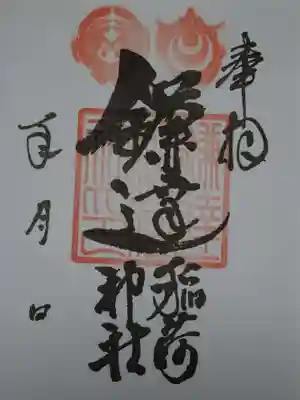 奉拝
鎌達
稲荷
神社
年月日